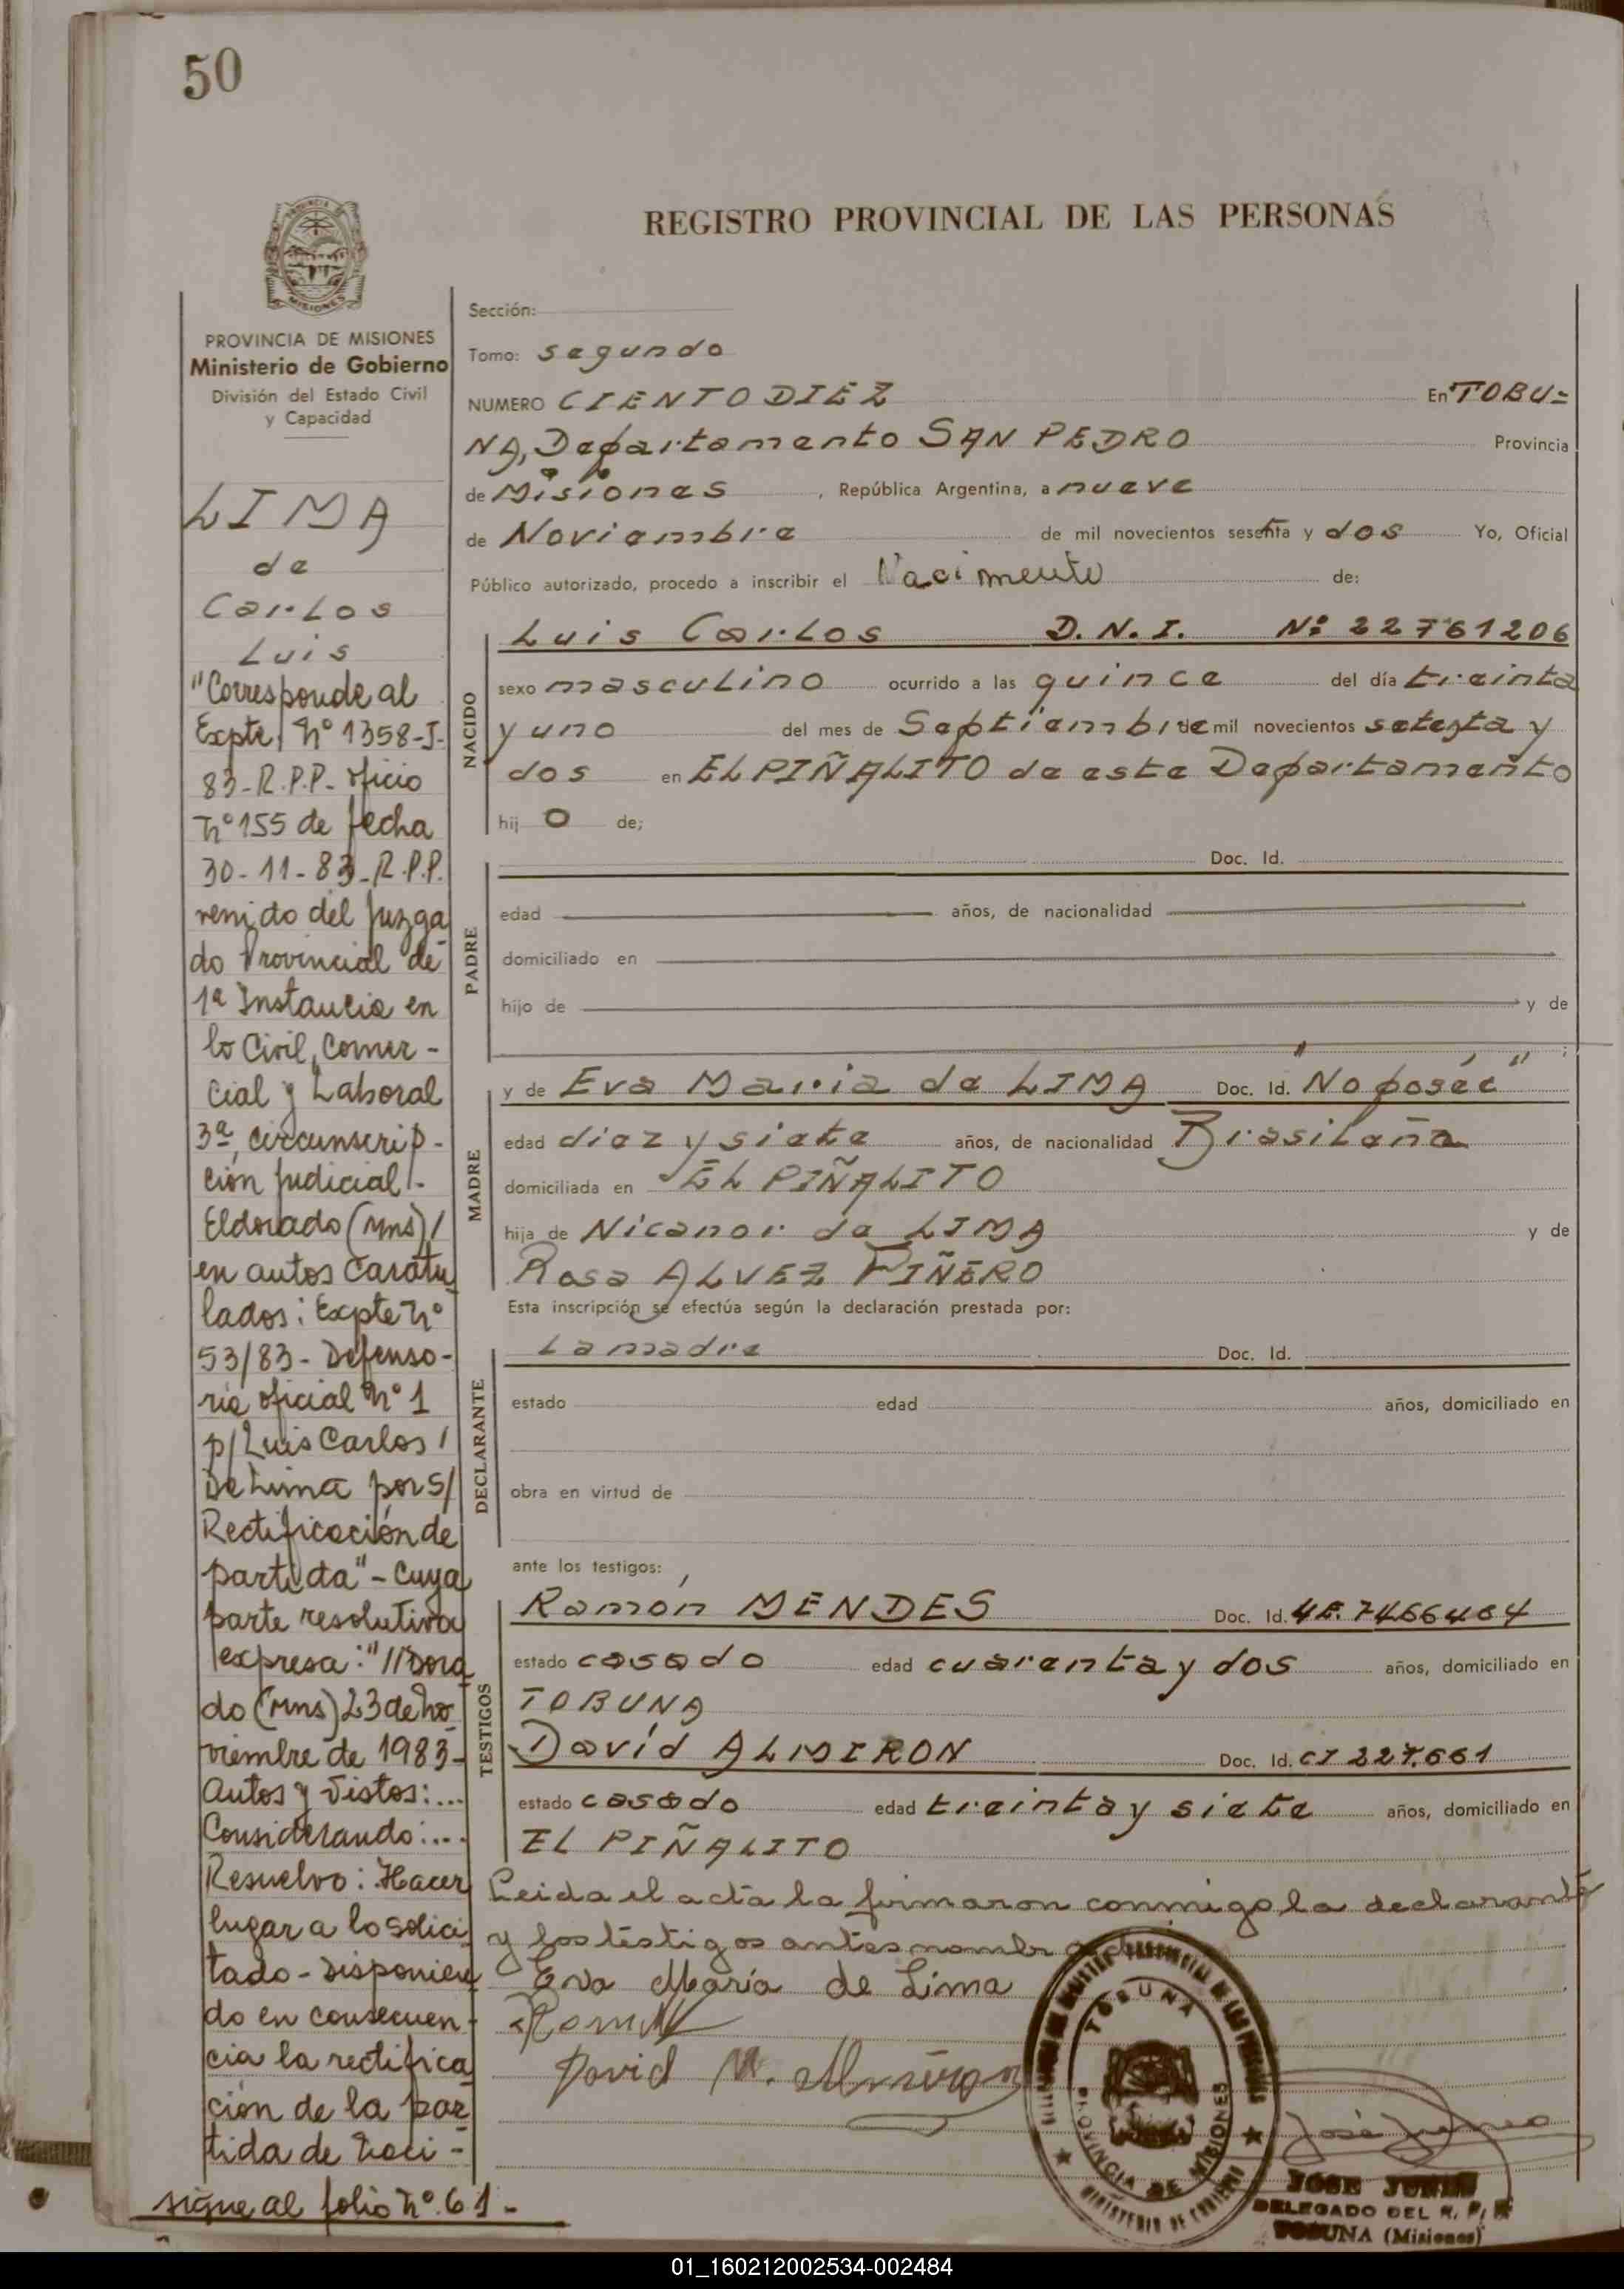 50
REGISTRO PROVINCIAL DE LAS PERSONAS
PROVINCIA DE MISIONES
Ministerio de Gobierno
División del Estado Civil
y Capacidad
LIMA
de
Carlos
Luis
"Corresponde al
Expte. Nº 1358-J-
83-R.P.P. oficio
nº 155 de fecha
30-11-83-R.P.P.
venido del Juzga
do Provincial de
1ª Instancia en
lo Civil, Comer-
cial y Laboral
3ª, circunscrip-
ción Judicial-
Eldorado (Mns)/
en autos caratu
lados: Expte nº
53/83 - Defenso-
ria oficial Nº 1
p/ Luis Carlos /
De Lima por S/
Rectificación de
partida" - Cuya
parte resolutiva
expresa: "//Dora
do (Mns) 23 de No
viembre de 1983-
Autos y Vistos:...
Considerando:...
Resuelvo: Hacer
lugar a lo solici
tado - Disponien
do en consecuen-
cia la rectifica
ción de la par
tida de naci-
sigue al folio nº 61-
Sección:
Tomo: segundo
NUMERO CIENTO DIEZ En TOBU=
NA, Departamento SAN PEDRO Provincia
de Misiones, República Argentina, a nueve
de Noviembre de mil novecientos sesenta y dos Yo, Oficial
Público autorizado, procedo a inscribir el Nacimento de:
NACIDO
Luis Carlos D.N.I. Nº 22761206
sexo masculino ocurrido a las quince del día treinta
y uno del mes de Septiembre de mil novecientos setenta y
dos en EL PIÑALITO de este Departamento
hij o de;
PADRE
Doc. Id.
edad años, de nacionalidad
domiciliado en
hijo de y de
MADRE
y de Eva Maria de LIMA Doc. Id. "No poséé"
edad diez y siete años, de nacionalidad Brasileña
domiciliada en EL PIÑALITO
hija de Nicanor de LIMA y de
Rosa ALVEZ PIÑERO
Esta inscripción se efectúa según la declaración prestada por:
DECLARANTE
La madre Doc. Id.
estado edad años, domiciliado en
obra en virtud de
ante los testigos:
TESTIGOS
Ramón MENDES Doc. Id. LE. 7466464
estado casado edad cuarenta y dos años, domiciliado en
TOBUNA
David ALMIRON Doc. Id. CI 227.661
estado casado edad treinta y siete años, domiciliado en
EL PIÑALITO
Leida el acta la firmaron conmigo la declarante
y los testigos antes
Eva María de Lima
David M. Almiron
TOBUNA
PROVINCIA DE MISIONES
DELEGADO DEL R. P. P.
TOBUNA (Misiones)
01_160212002534-002484